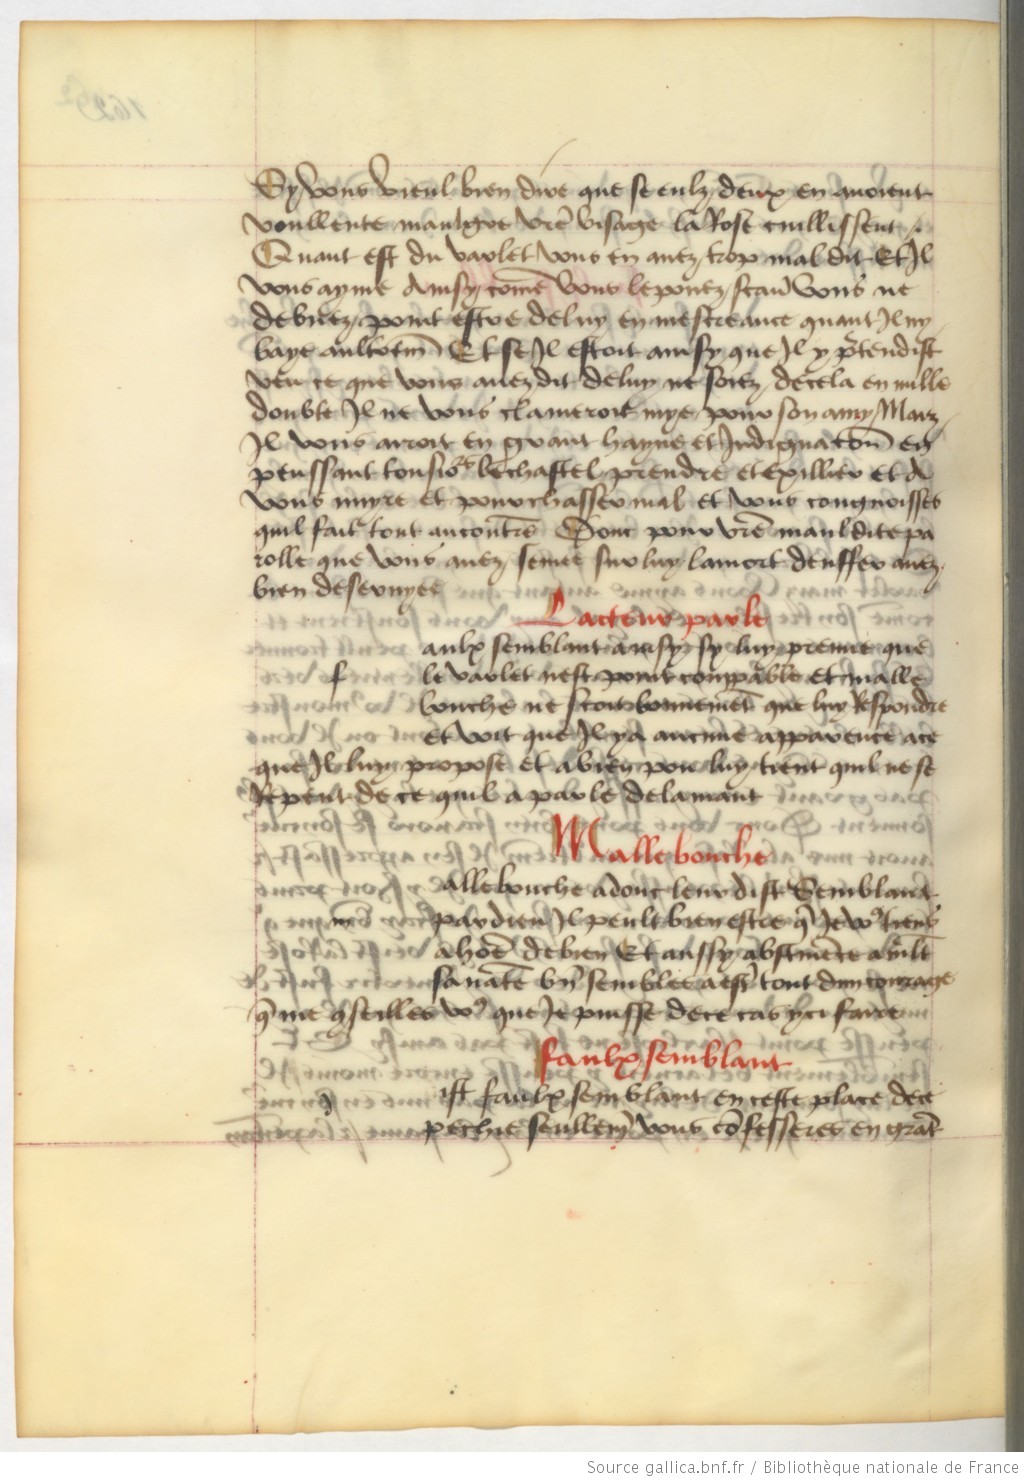 Sy vous vieul bien dire que se eulz deux en avoient
voullente maulgre vr̃e visage la Rose cuillissent /.
Quant est du varlet vous en avez trop mal dit Et Il
vous ayme Ainsy com̃e vous le povez scav̄ vous ne
debvez point estre de luy en mescreance quant Il ny
baye aultrem̄ Et se Il estoit ainsy que Il y p̃tendist
veu ce que vous avez dit de luy ne soiez de cela en nulle
doubte Il ne vous clameroit mye pour son amy Maiz
Il vous auroit en grant hayne et Indignacōn en
penssant tousio᷒rs le chastel prendre et exillier et A
vous nuyre et pourchasser mal et vous congnoisses
quil fait tout au contr̃e Donc pour vr̃e mauldite pa
rolle que vous avez semee sur luy la mort denffer avez
bien deservyee
Lacteur parle
f aulx semblant ainsy sy luy preuve que
le varlet nest point coupable et malle
bouche ne scait bonnemēt que luy Respondre
et voit que Il y a aucune apparence a ce
que Il luy propose et a bien pou luy tient quil ne se
Repent de ce quil a parle de lamant
Mallebouche
m allebouche adonc leur dist Semblant
par dieu Il peult bien estre q̃ Je v᷒ tiens
a hōe de bien Et aussy abstinēce
vn̄ sembler a estr̃ tout dun courage
q̃ me 9seilles v᷒ que Je puisse de ce cas yci faire
faulx semblant
ist faulx semblant en ceste place de ce
pechie seullem̄ vous cōfesseres en grāt
Source gallica.bnf.fr / Bibliothèque nationale de France